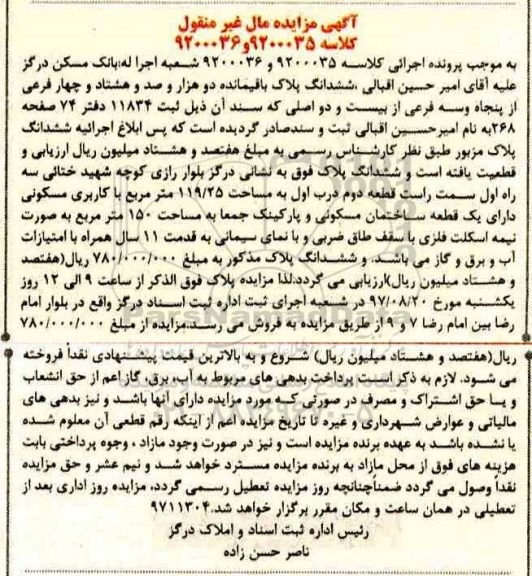 آگهی مزایده مال غیر منقول
کلاسه ۹۲۰۰۰۳۵و۹۲۰۰۰۳۶
به موجب پرونده اجرائی کلاسه ۹۲۰۰۰۳۵ و ۹۲۰۰۰۳۶ شعبه اجرا له:بانک مسکن درگز
علیه آقای امیر حسین اقبالی ،ششدانگ پلاک باقیمانده دو هزار و صد و هشتاد و چهار فرعی
از پنجاه وسه فرعی از بیست و دو اصلی که سند آن ذیل ثبت ۱۱۸۳۴ دفتر ۷۴ صفحه
۲۶۸به نام امیرحسین اقبالی ثبت و سندصادر گردیده است که پس ابلاغ اجرائیه ششدانگ
پلاک مزبور طبق نظر کارشناس رسمی به مبلغ هفتصد و هشتاد میلیون ریال ارزیابی و
قطعیت یافته است و ششدانگ پلاک فوق به نشانی درگز بلوار رازی کوچه شهید ختائی سه
راه اول سمت راست قطعه دوم درب اول به مساحت ۱۱۹/۲۵ متر مربع با کاربری مسکونی
دارای یک قطعه ساختمان مسکونی و پارکینگ جمعا به مساحت ۱۵۰ متر مربع به صورت
نیمه اسکلت فلزی با سقف طاق ضربی و با نمای سیمانی به قدمت ۱۱ سال همراه با امتیازات
آب و برق و گاز می باشد. و ششدانگ پلاک مذکور به مبلغ ۷۸۰/۰۰۰/۰۰۰ ریال(هفتصد
و هشتاد میلیون ریال)ارزیابی می گردد.لذا مزایده پلاک فوق الذکر از ساعت ۹ الی ۱۲ روز
یکشنبه مورخ ۹۷/۰۸/۲۰ در شعبه اجرای ثبت اداره ثبت اسناد درگز واقع در بلوار امام
رضا بین امام رضا ۷ و ۹ از طریق مزایده به فروش می رسد.مزایده از مبلغ ۷۸۰/۰۰۰/۰۰۰
ریال(هفتصد و هشتاد میلیون ریال) شروع و به بالاترین قیمت پیشنهادی نقداً فروخته
می شود. لازم به ذکر است پرداخت بدهی های مربوط به آب، برق، گاز اعم از حق انشعاب
و یا حق اشتراک و مصرف در صورتی که مورد مزایده دارای آنها باشد و نیز بدهی های
مالیاتی و عوارض شهرداری و غیره تا تاریخ مزایده اعم از اینکه رقم قطعی آن معلوم شده
یا نشده باشد به عهده برنده مزایده است و نیز در صورت وجود مازاد ، وجوه پرداختی بابت
هزینه های فوق از محل مازاد به برنده مزایده مسترد خواهد شد و نیم عشر و حق مزایده
نقداً وصول می گردد ضمناًچنانچه روز مزایده تعطیل رسمی گردد، مزایده روز اداری بعد از
تعطیلی در همان ساعت و مکان مقرر برگزار خواهد شد.۹۷۱۱۳۰۴
رئیس اداره ثبت اسناد و املاک درگز
ناصر حسن زاده